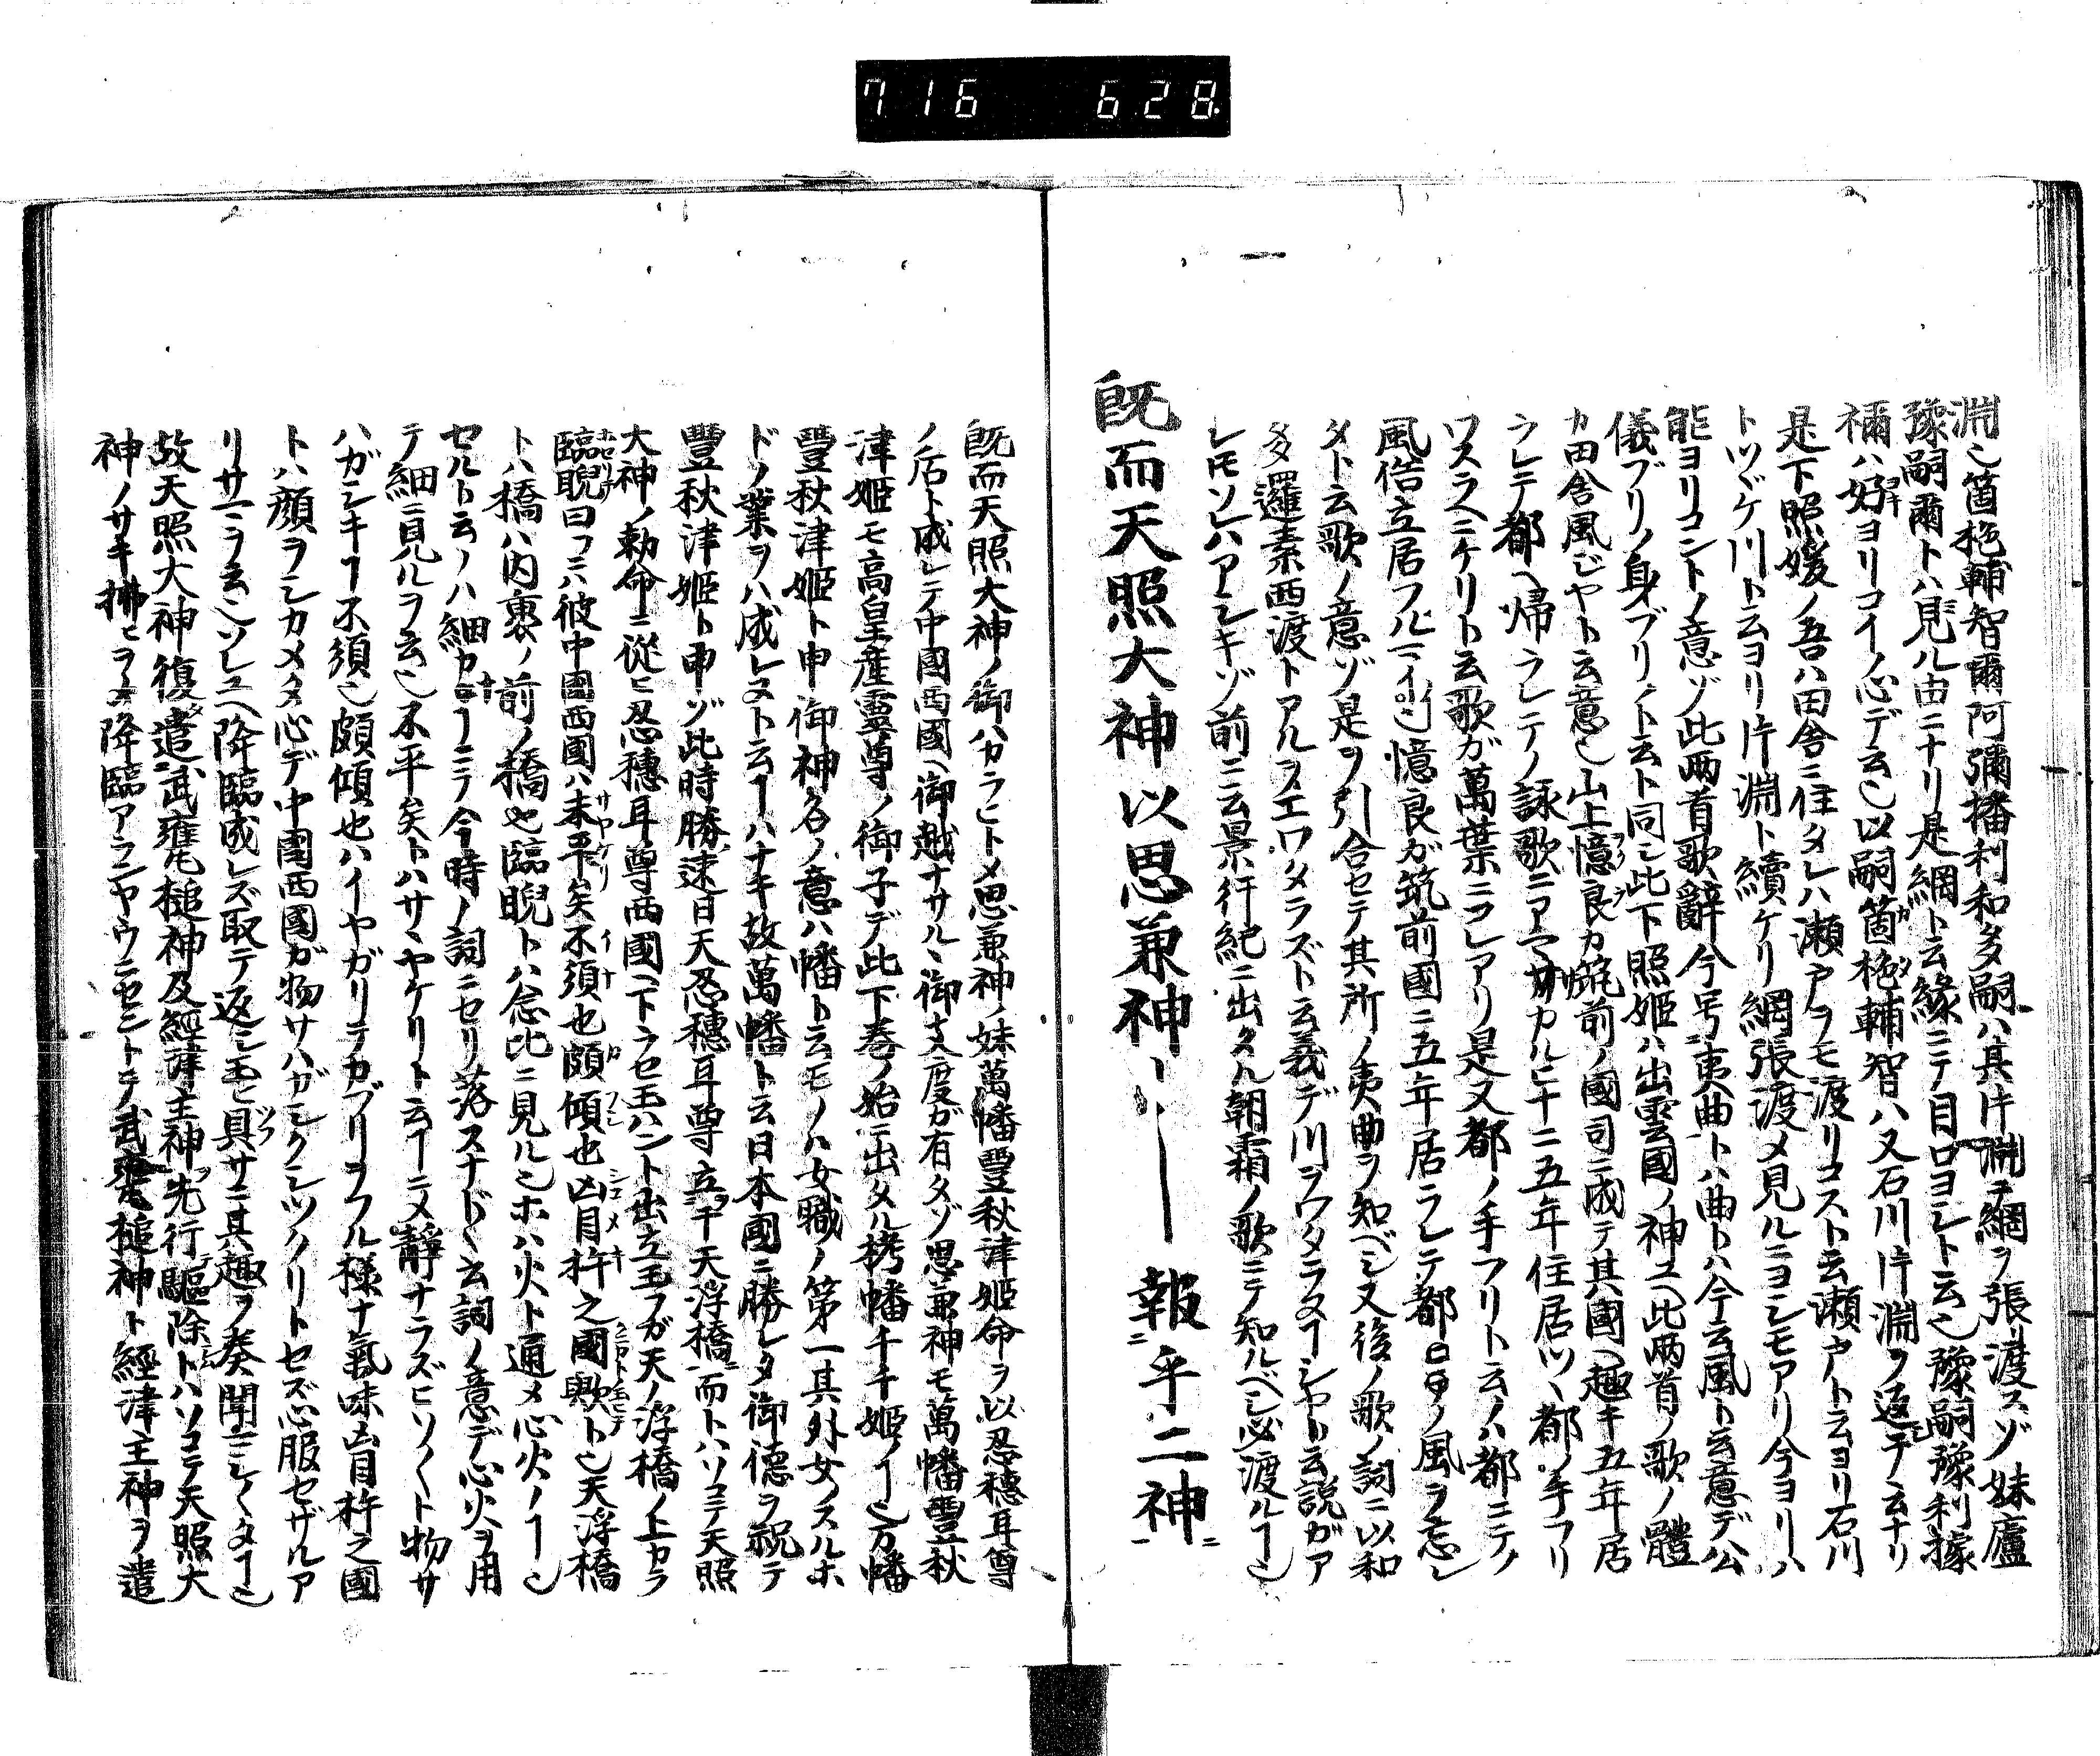 716 628
淵也箇𣏾輔智爾阿彌播利和多嗣ハ其片淵ヲ網ヲ張渡スゾ妹廬
豫嗣爾トハ見ル由ニナリ是網ト云縁ニテ目ロヨシト云也豫嗣豫利據
禰ハ好ヨリコイノ心デ云也以嗣箇𣏾輔智ハ又石川片淵ヲ返テ云ナリ
是下照媛ノ吾ハ田舎ニ住タレハ瀬戸ヲモ渡リコスト云瀬戸ト云ヨリ石川
トツヾケ川ト云ヨリ片淵ト續ケリ網張渡メ見ルニヨシモアリ今ヨリハ
能ヨリコントノ意ゾ此両首歌辭今号夷曲トハ曲トハ今云風ト云意デ公
儀ブリノ身ブリノト云ト同シ此下照姫ハ出雲國ノ神ユヘ此両首ノ歌ノ體
カ田舎風ジヤト云意也山上憶良カ筑前ノ國司ニ成テ其國ヘ趣キ五年居
ラレテ都ヘ帰ラレテノ詠歌ニアマサカルヒナニ五年住居ツヽ都ノ手フリ
ワスラヘニケリト云歌ガ萬葉ニコレアリ是又都ノ手フリト云ノハ都ニテノ
風俗立居フルマイ也憶良ガ筑前國ニ五年居ラレテ都ノ風ヲ忘レ
タト云歌ノ意ゾ是ヲ引合セテ其所ノ夷曲ヲ知ベシ又後ノ歌ノ詞ニ以和
多邏素西渡トアルヲエワタラズト云義デ川ヲワタラヌヿシヤト云説ガア
レモソレハアシキゾ前ニ云景行紀ニ出タル朝霜ノ歌ニテ知ルベシ必渡ルヿ也
既而天照大神以思兼神ーーー報乎二神
既而天照大神ノ御ハカラヒトメ思兼神ノ妹萬幡豐秋津姫命ヲ以忍穗耳尊
ノ后ト成レテ中國西國ヘ御越ナサルヽ御支度ガ有タゾ思兼神モ萬幡豐秋
津姫モ高皇産靈尊ノ御子デ此下巻ノ始ニ出タル栲幡千千姫ノヿ也万幡
豐秋津姫ト申御神名ノ意ハ幡ト云モノハ女職ノ第一其外女ノスルホ
ドノ業ヲハ成レヌト云ヿハナキ故萬幡ト云日本國ニ勝レタ御德ヲ祝テ
豐秋津姫ト申ゾ此時勝速日天忍穗耳尊立于天浮橋而トハソコテ天照
大神ノ勅命ニ從ヒ忍穗耳尊西國ヘ下ラセ玉ハント出立玉フガ天ノ浮橋ノ上カラ
臨睨曰フニハ彼中國西國ハ未平矣不須也頗傾也凶目杵之國歟ト也天浮橋
トハ橋ハ内裏ノ前ノ橋也臨睨トハ念比ニ見ル也ホハ火ト通メ心火ノヿ也
セルト云ノハ細カナヿニテ今時ノ詞ニセリ落スナドヽ云詞ノ意デ心火ヲ用
テ細ニ見ルヲ云也不平矣トハサヽヤケリト云ヿニメ靜ナラズヒソノヽト物サ
ハガシキヿ不須也頗傾也ハイヤガリテカブリヲフル様ナ氣味凶目杵之國
トハ顔ヲシカメタ心デ中國西國ガ物サハガシクシツノリトセズ心服セザルア
リサマヲ云也ソレユヘ降臨成レズ取テ返シ玉ヒ具サニ其趣ヲ奏聞マシマシタヿ也
故天照大神復遣武甕槌神及經津主神先行驅除トハソコテ天照大
神ノサキ拂ヒヲメ降臨アランヤウニセントテ武甕槌神ト經津主神ヲ遣